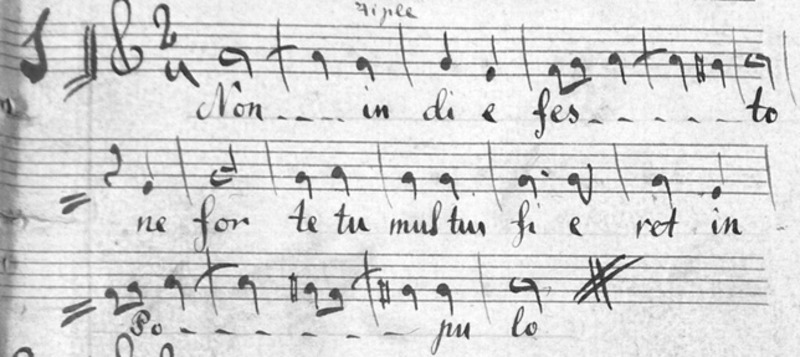 Triple
2
Non ---- in di e fes - - - - - to
ne for te tu mul tus fi e ret in
Po - - - - - - - pu lo